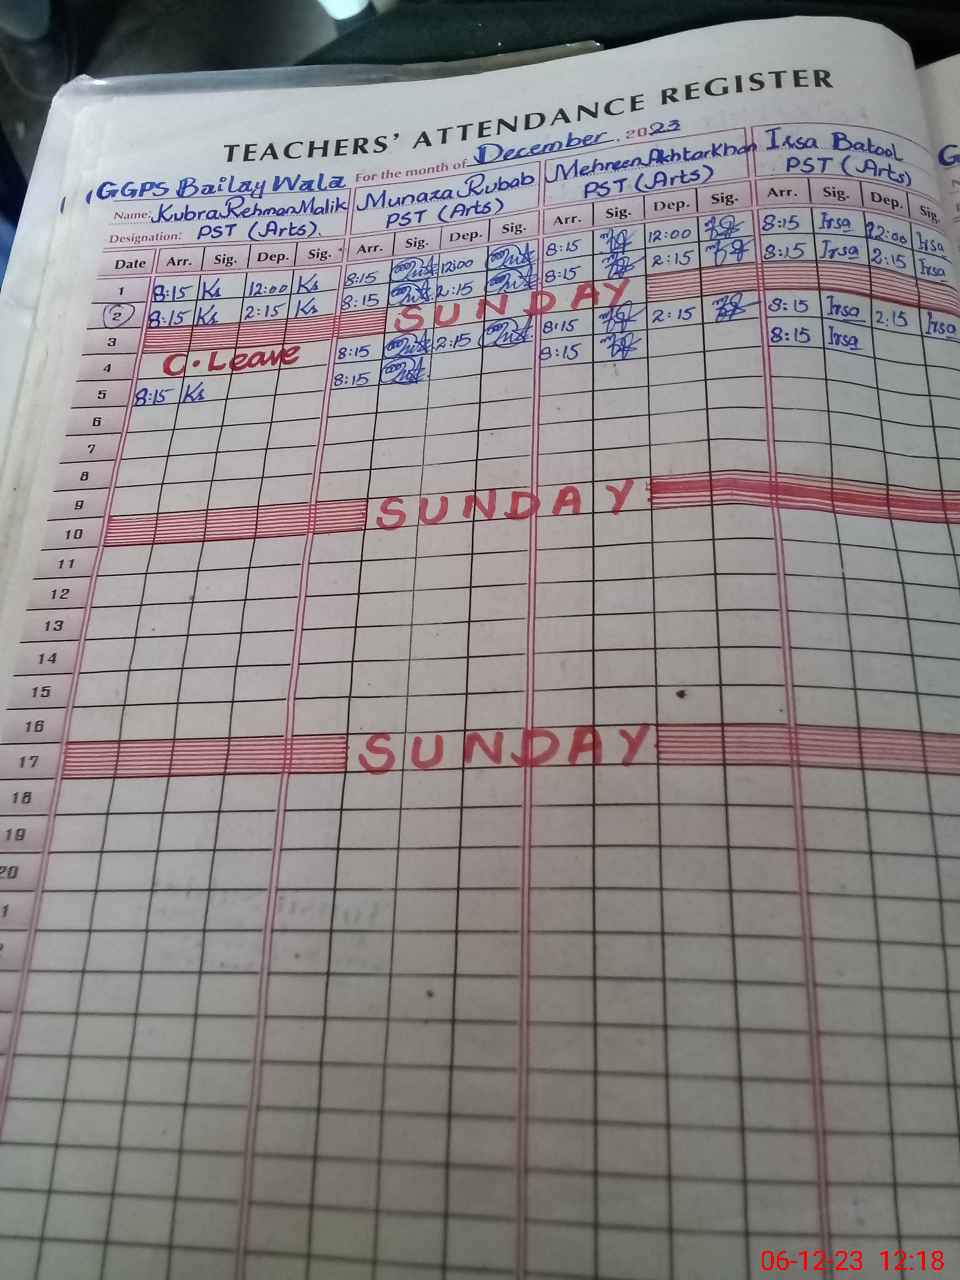 TEACHERS' ATTENDANCE REGISTER
GGPS Bailay Wala For the month of December. 2023
Name: Kubra Rehman Malik Munaza Rubab Mehreen Akhtar Khan Irsa Batool
Designation: PST (Arts). PST (Arts) PST (Arts) PST (Arts)
Date Arr. Sig. Dep. Sig. Arr. Sig. Dep. Sig. Arr. Sig. Dep. Sig. Arr. Sig. Dep. Sig.
1 8:15 Ks 12:00 Ks 8:15 12:00 8:15 12:00 8:15 Irsa 12:00 Irsa
2 8:15 Ks 2:15 Ks 8:15 2:15 8:15 2:15 8:15 Irsa 2:15 Irsa
3 SUNDAY
4 C. Leave 8:15 2:15 8:15 2:15 8:15 Irsa 2:15 Irsa
5 8:15 Ks 8:15 8:15 8:15 Irsa
6
7
8
9
10 SUNDAY
11
12
13
14
15
16
17 SUNDAY
18
19
20
1
06-12-23 12:18